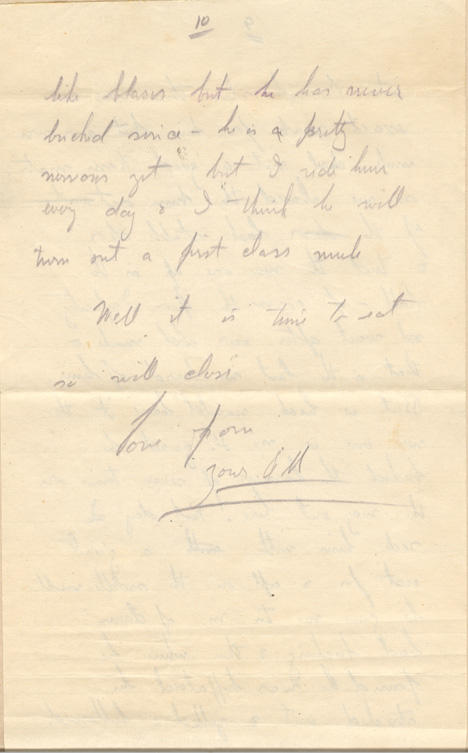 10
like blases but he has never
bucked since - he is a pretty
nervous yet but I ride him
every day & I think he will
turn out a first class mule
Well it is time to eat
so will close
Love from
your Bill